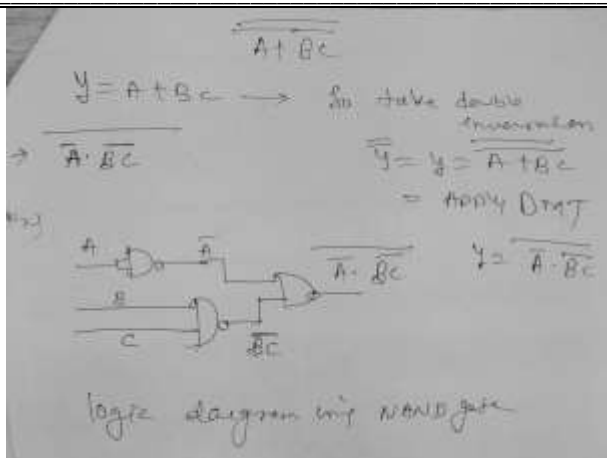 $\overline{\overline{A + BC}}$
y = A + Bc → So take double inversion
→ $\overline{\overline{A} \cdot \overline{BC}}$
$\overline{\overline{y}}$ = y = $\overline{\overline{A + BC}}$
= Apply DMT
y = $\overline{\overline{A} \cdot \overline{BC}}$
A $\overline{A}$ $\overline{\overline{A} \cdot \overline{BC}}$
B
C $\overline{BC}$
logic daigram NAND gate